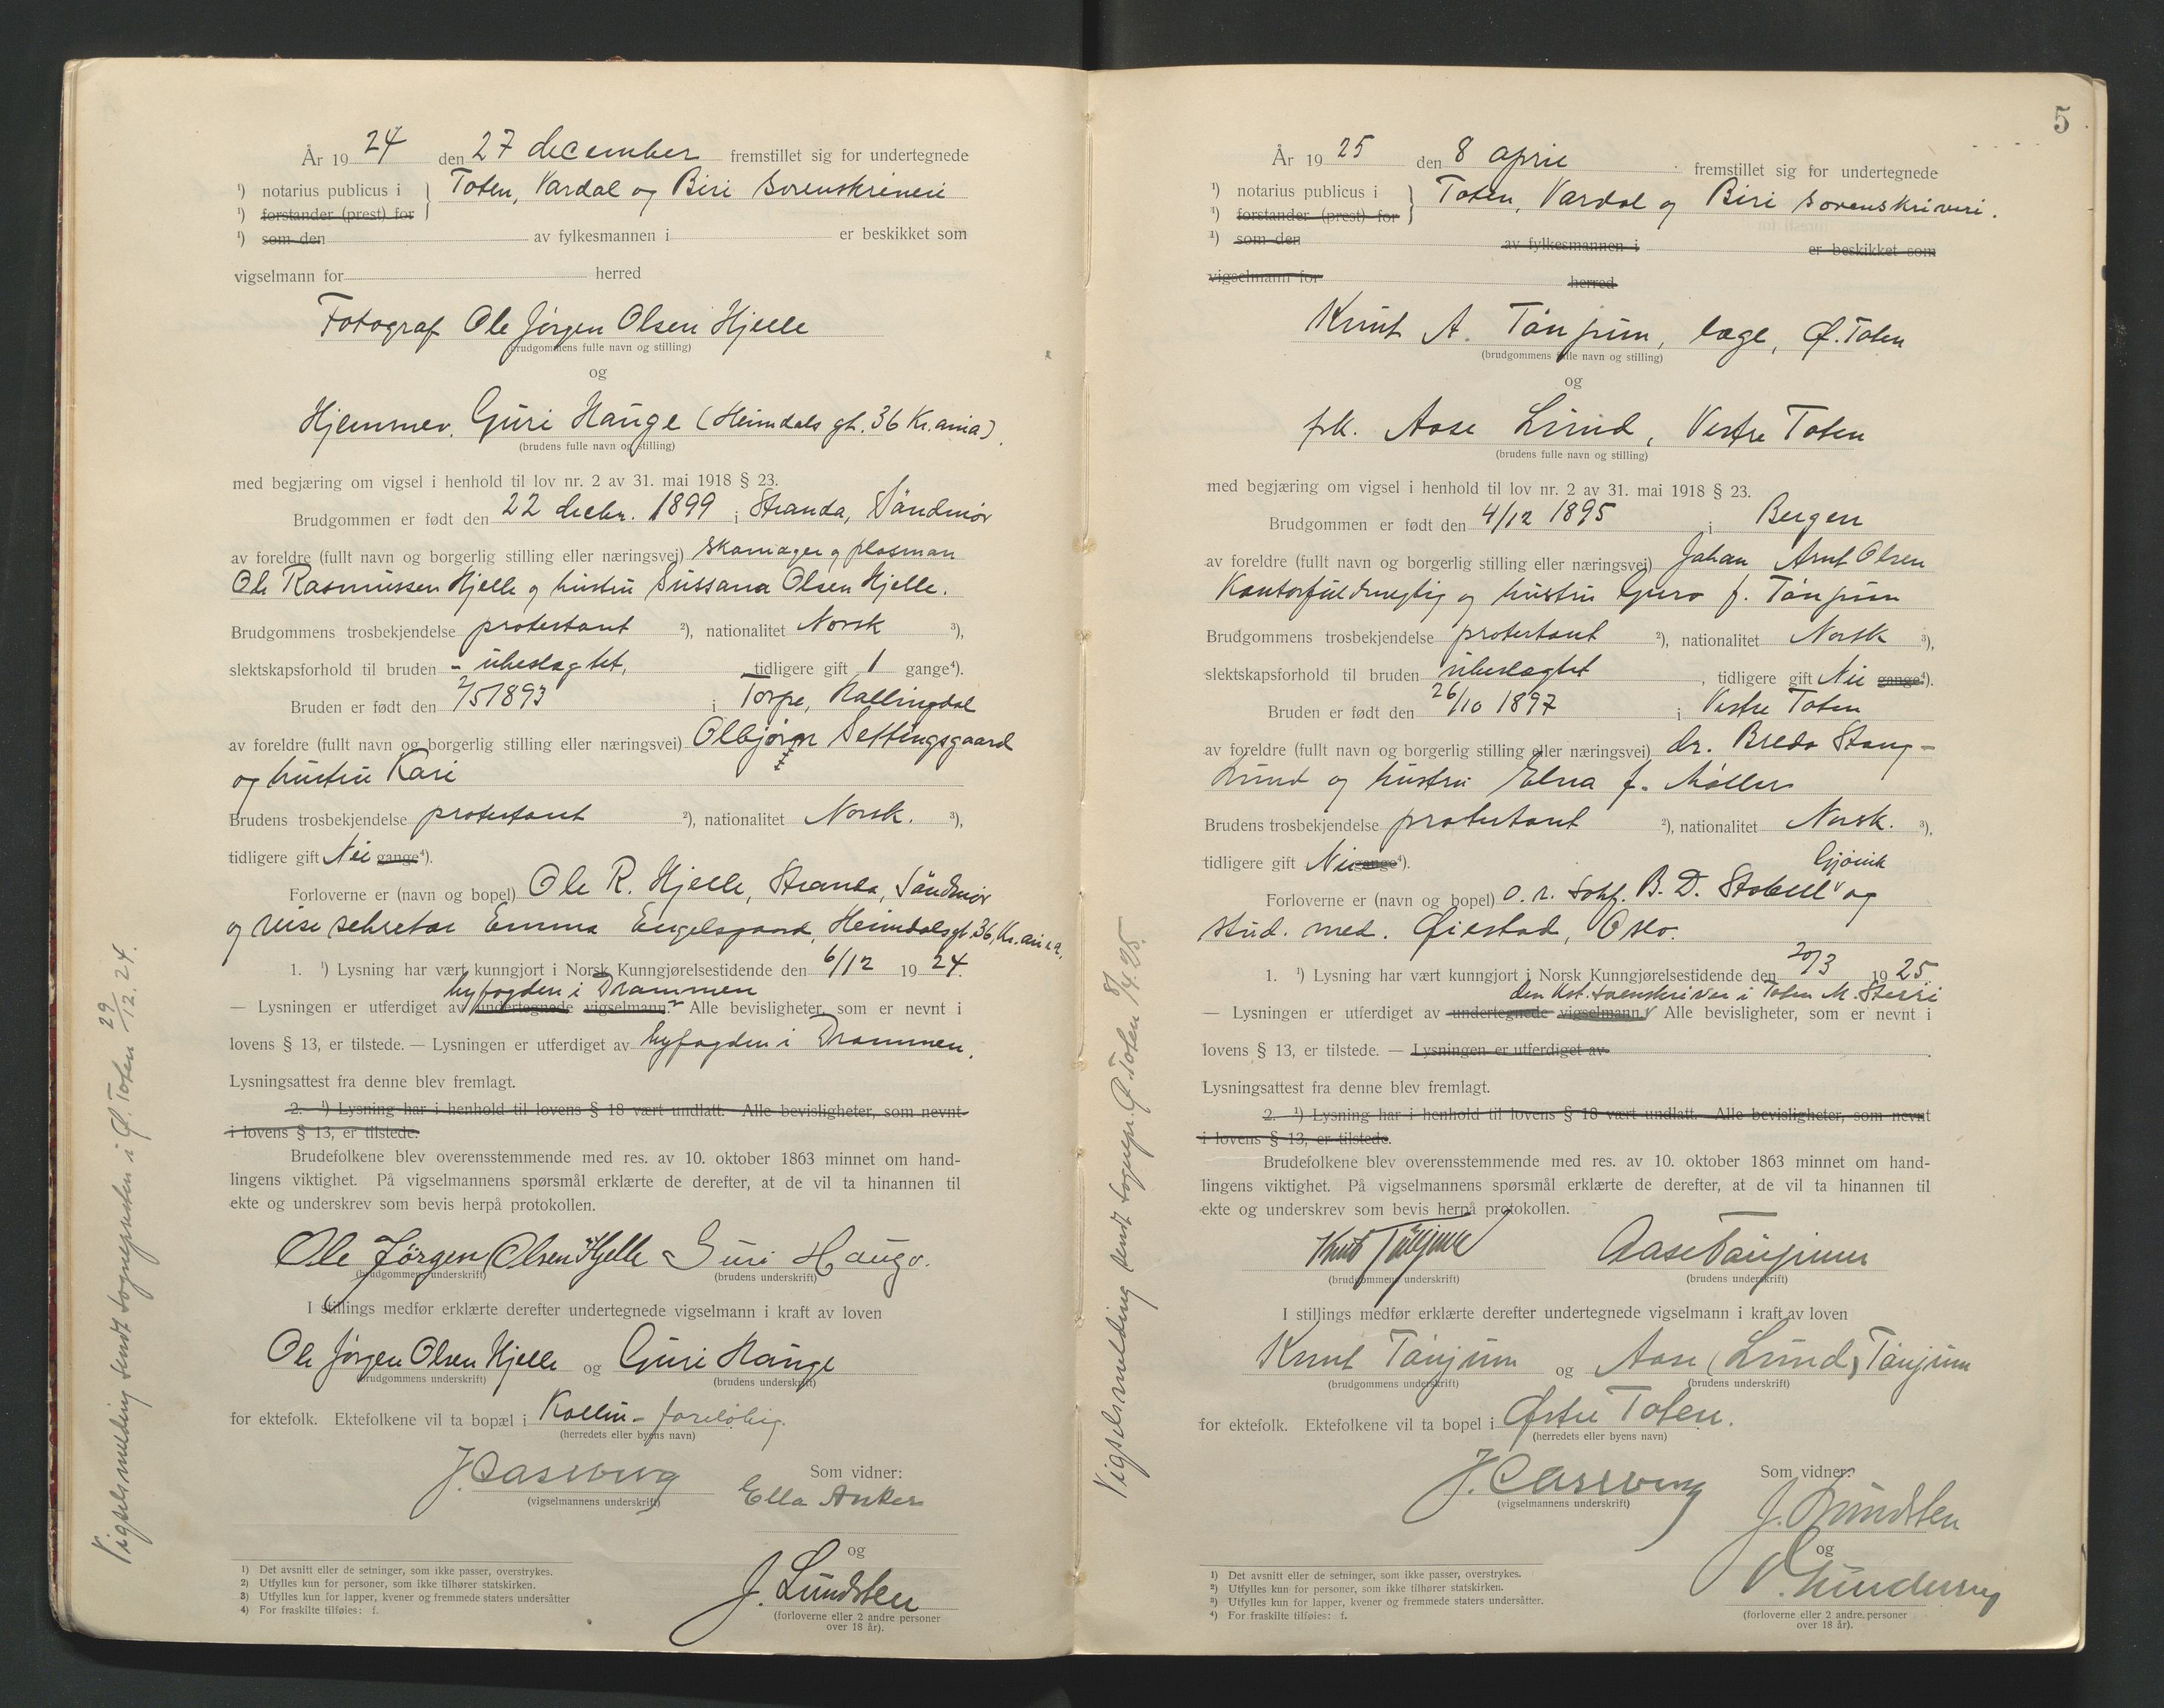 År 19 24 den 27 december fremstillet sig for undertegnede
1) notarius publicus i } Toten, Vardal og Biri sorenskriveri
1) forstander (prest) for
1) som den av fylkesmannen i er beskikket som
vigselmann for herred
Fotograf Ole Jørgen Olsen Hjelle
(brudgommens fulle navn og stilling)
og
Hjemmev. Guri Hauge (Heimdals gt. 36 Kr.ania)
(brudens fulle navn og stilling)
med begjæring om vigsel i henhold til lov nr. 2 av 31. mai 1918 § 23.
Brudgommen er født den 22 decbr. 1899 i Stranda, Söndmör
av foreldre (fullt navn og borgerlig stilling eller næringsvei) skomager og plasman
Ole Rasmussen Hjelle og hustru Sussana Olsen Hjelle.
Brudgommens trosbekjendelse protestant 2), nationalitet Norsk 3),
slektskapsforhold til bruden - ubeslægtet, tidligere gift 1 gange4).
Bruden er født den 2/5 1893 i Torpe, Hallingdal
av foreldre (fullt navn og borgerlig stilling eller næringsvei) Olbjørn Settingsgaard
og hustru Kari
Brudens trosbekjendelse protestant 2), nationalitet Norsk. 3),
tidligere gift Nei gange4).
Forloverne er (navn og bopel) Ole R. Hjelle, Stranda, Söndmör
og reise sekretær Emma Engelsgaard, Heimdalsgt. 36, Kr.ania,
1. 1) Lysning har vært kunngjort i Norsk Kunngjørelsestidende den 6/12 19 24.
byfogden i Drammen
— Lysningen er utferdiget av undertegnede vigselmann. Alle bevisligheter, som er nevnt i
lovens § 13, er tilstede. — Lysningen er utferdiget av byfogden i Drammen.
Lysningsattest fra denne blev fremlagt.
2. 1) Lysning har i henhold til lovens § 18 vært undlatt. Alle bevisligheter, som nevnt
i lovens § 13, er tilstede.
Brudefolkene blev overensstemmende med res. av 10. oktober 1863 minnet om hand-
lingens viktighet. På vigselmannens spørsmål erklærte de derefter, at de vil ta hinannen til
ekte og underskrev som bevis herpå protokollen.
Ole Jørgen Olsen Hjelle Guri Hauge.
(brudgommens underskrift) (brudens underskrift)
I stillings medfør erklærte derefter undertegnede vigselmann i kraft av loven
Ole Jørgen Olsen Hjelle og Guri Hauge
(brudgommens underskrift) (brudens underskrift)
for ektefolk. Ektefolkene vil ta bopæl i Kolbu - foreløbig.
(herredets eller byens navn)
Som vidner:
(vigselmannens underskrift) Ella Anker
og
J. Lundsten
(forloverne eller 2 andre personer
over 18 år).
1) Det avsnitt eller de setninger, som ikke passer, overstrykes.
2) Utfylles kun for personer, som ikke tilhører statskirken.
3) Utfylles kun for lapper, kvener og fremmede staters undersåtter
4) For fraskilte tilføies: f.
Vigselsmelding sendt sognepresten i Ø. Toten 29/12. 24.
5
År 19 25 den 8 april fremstillet sig for undertegnede
1) notarius publicus i } Toten, Vardal og Biri sorenskriveri.
1) forstander (prest) for
1) som den av fylkesmannen i er beskikket som
vigselmann for herred
Knut A. Tønjum, læge, Ø. Toten
(brudgommens fulle navn og stilling)
og
frk. Aase Lund, Vestre Toten
(brudens fulle navn og stilling)
med begjæring om vigsel i henhold til lov nr. 2 av 31. mai 1918 § 23.
Brudgommen er født den 4/12 1895 i Bergen
av foreldre (fullt navn og borgerlig stilling eller næringsvei) Johan Arnt Olsen
Kontorfuldmegtig og hustru Guro f. Tønjum
Brudgommens trosbekjendelse protestant 2), nationalitet Norsk 3),
slektskapsforhold til bruden ubeslægtet, tidligere gift Nei gange4).
Bruden er født den 26/10 1897 i Vestre Toten
av foreldre (fullt navn og borgerlig stilling eller næringsvei) dr. Breda Stang-
Lund og hustru Elna f. Møller
Brudens trosbekjendelse protestant 2), nationalitet Norsk. 3),
tidligere gift Nei gange4). Gjøvik
Forloverne er (navn og bopel) o. r. sakf. B. D. Stabell og
stud. med. Øiestad, Oslo.
1. 1) Lysning har vært kunngjort i Norsk Kunngjørelsestidende den 20/3 19 25
den kst. sorenskriver i Toten M.
— Lysningen er utferdiget av undertegnede vigselmann. Alle bevisligheter, som er nevnt i
lovens § 13, er tilstede. — Lysningen er utferdiget av
Lysningsattest fra denne blev fremlagt.
2. 1) Lysning har i henhold til lovens § 18 vært undlatt. Alle bevisligheter, som nevnt
i lovens § 13, er tilstede.
Brudefolkene blev overensstemmende med res. av 10. oktober 1863 minnet om hand-
lingens viktighet. På vigselmannens spørsmål erklærte de derefter, at de vil ta hinannen til
ekte og underskrev som bevis herpå protokollen.
Knut Tønjum Aase Tønjum
(brudgommens underskrift) (brudens underskrift)
I stillings medfør erklærte derefter undertegnede vigselmann i kraft av loven
Knut Tønjum og Aase (Lund) Tønjum
(brudgommens underskrift) (brudens underskrift)
for ektefolk. Ektefolkene vil ta bopel i Østre Toten.
(herredets eller byens navn)
Som vidner:
(vigselmannens underskrift) J. Lundsten
og
(forloverne eller 2 andre personer
over 18 år).
1) Det avsnitt eller de setninger, som ikke passer, overstrykes.
2) Utfylles kun for personer, som ikke tilhører statskirken.
3) Utfylles kun for lapper, kvener og fremmede staters undersåtter.
4) For fraskilte tilføies: f.
Vigselsmelding sendt sognepr. Ø. Toten 8/4. 25.